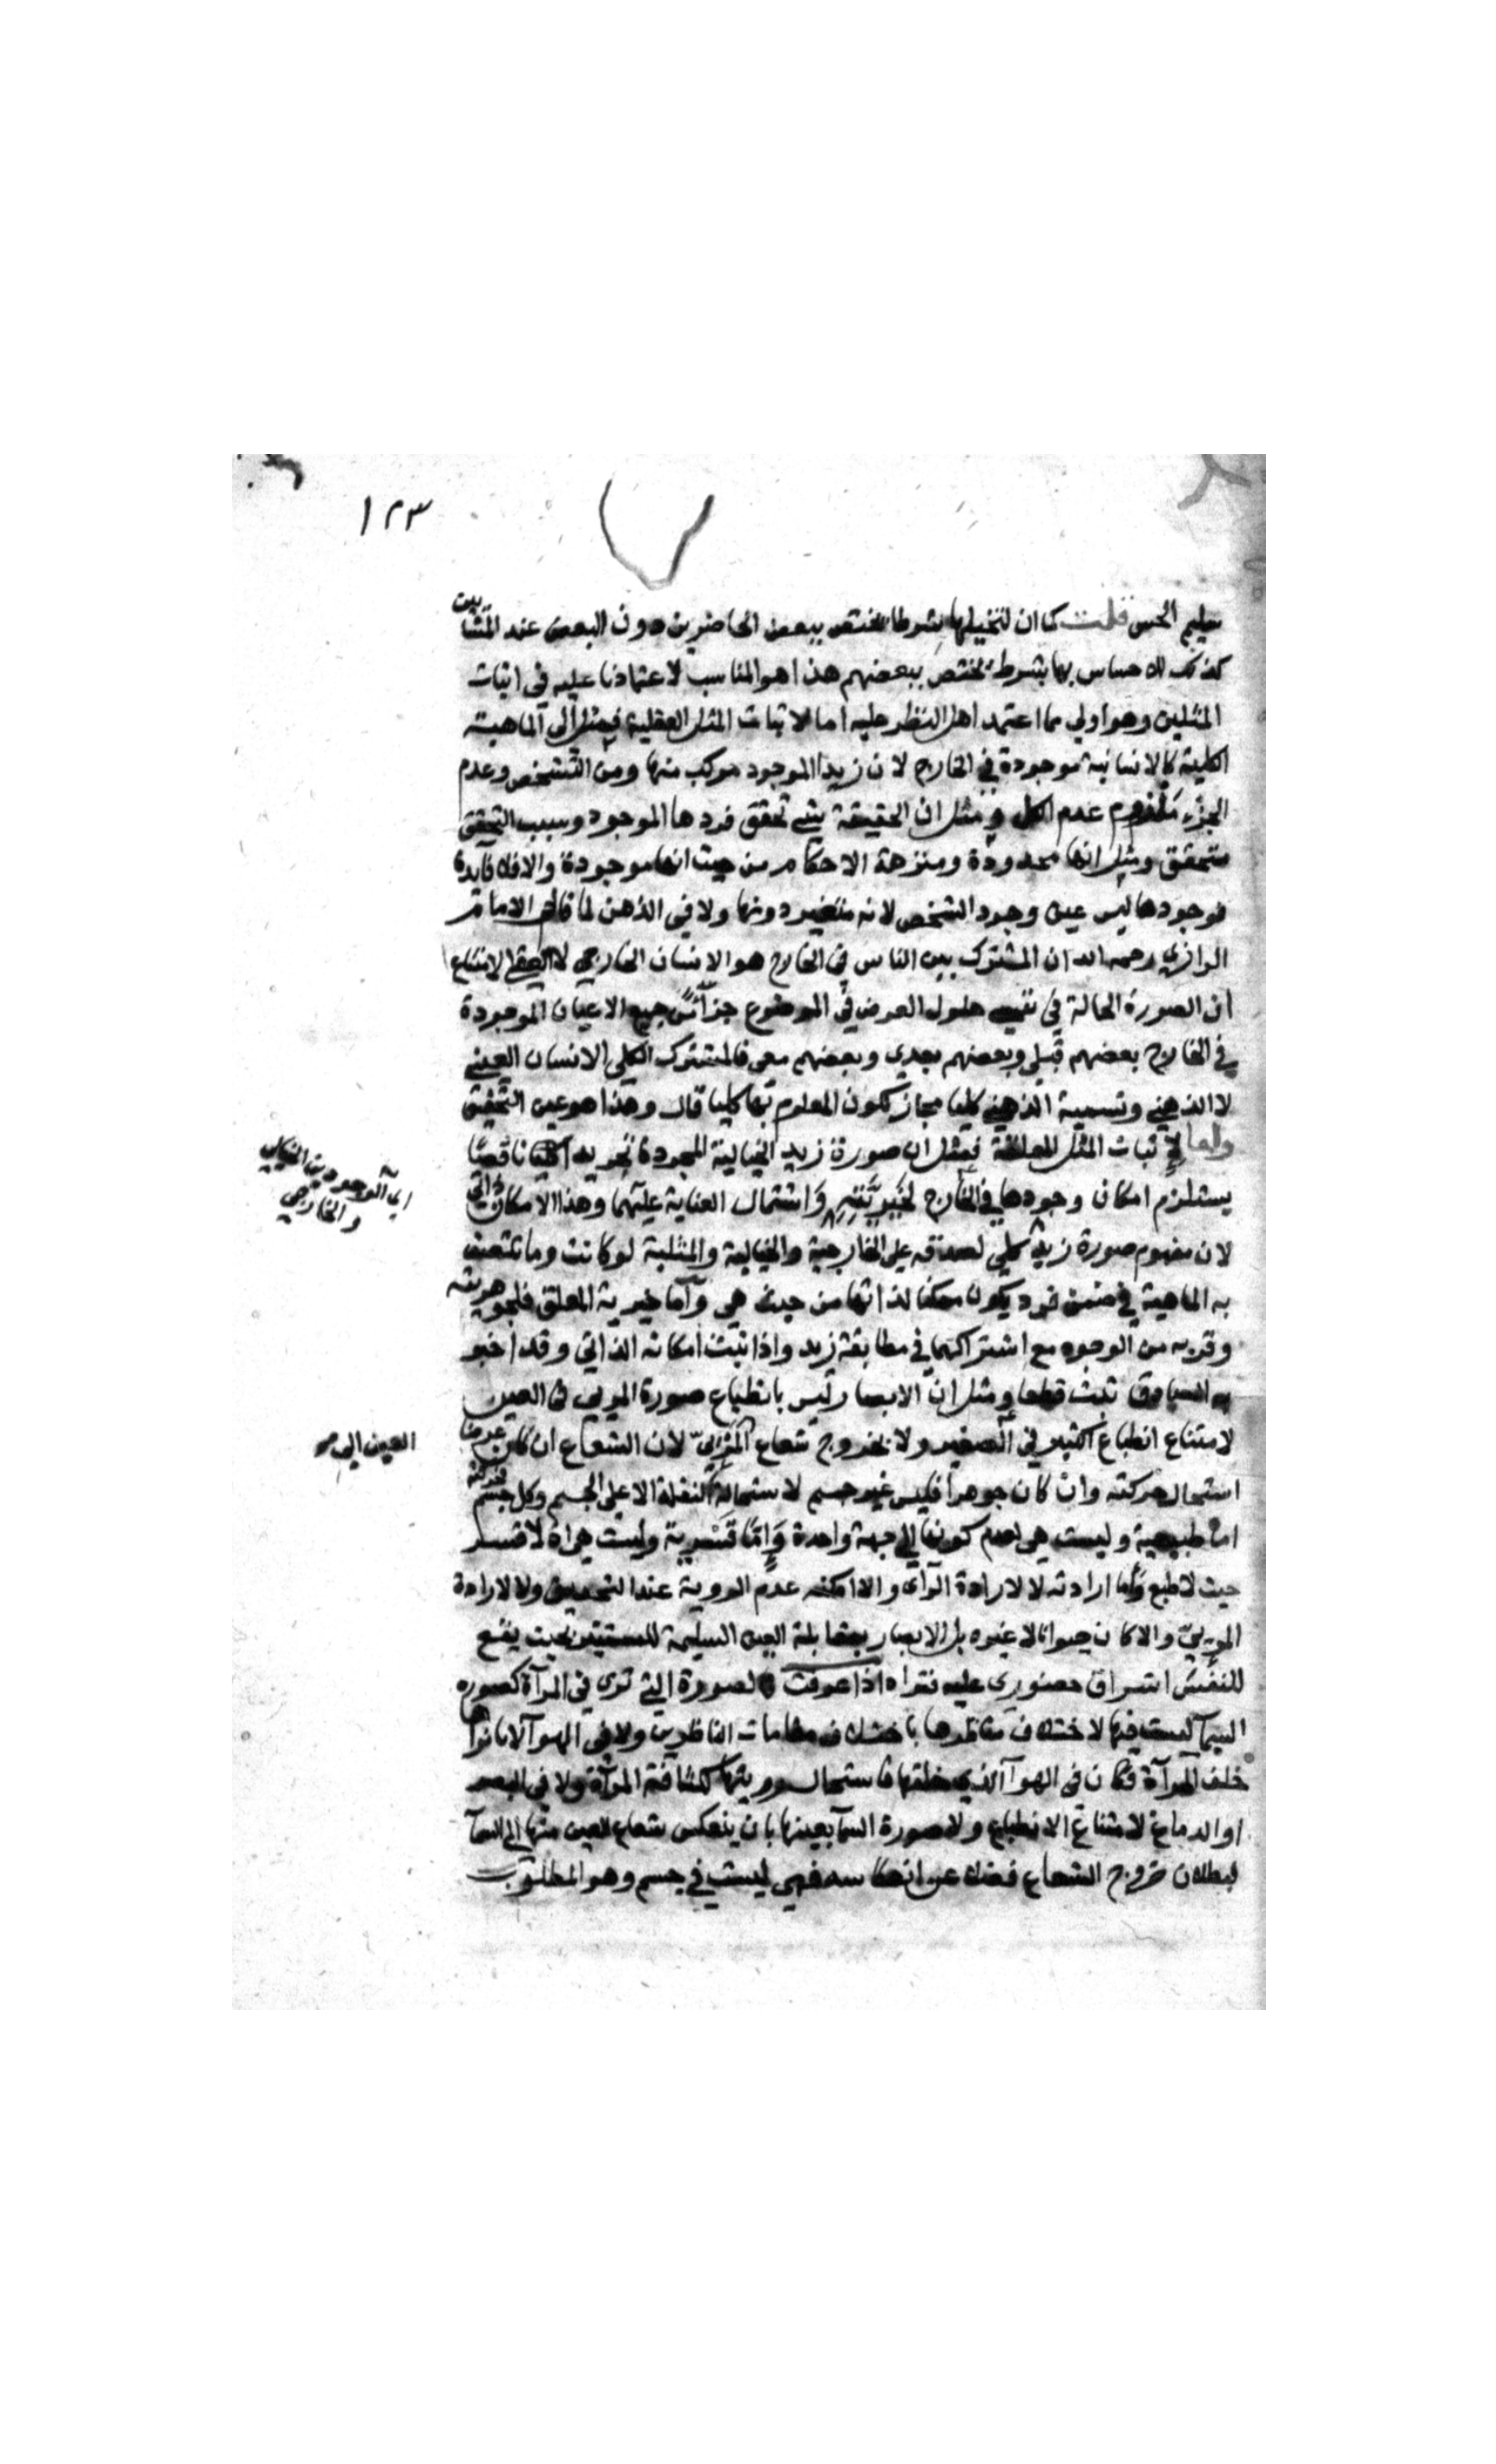 ١٢٣
سليم الحس قلت كما ان لتخيلها شرطا يختص ببعض الحاضرين دون البعض عند المشايين
كذلك للاحساس بها شرط يختص ببعضهم هذا هو المناسب لاعتمادنا عليه في اثبات
المثلين وهو اولى مما اعتمد اهل النظر عليه اما لاثبات المثل العقلية فمثل ان الماهية
الكلية كالانسانية موجودة في الخارج لان زيدا الموجود مركب منها ومن التشخص وعدم
الجزء ملزوم عدم الكل ومثل ان الحقيقة بتحقق فردها الموجود وسبب التحقق
متحقق ومثل انها محدودة ومنزهة الاحكام من حيث انها موجودة والا فلا فايدة
فوجودها ليس عين وجود الشخص لانه متغير دونها ولا في الذهن لما قال الامام
الرازي رحمه الله ان المشترك بين الناس في الخارج هو الانسان الخارجي لا العقلي لامتناع
ان الصورة الحالة في حلول العرض في الموضوع جزأ من جميع الاعيان الموجودة
في الخارج بعضهم قبلي وبعضهم بعدي وبعضهم معي فالمشترك الكلي الانسان العيني
لا الذهني وتسمية الذهني كليا مجاز لكون المعلوم بها كليا قال وهذا هو عين التحقيق
واما لاثبات المثل المعلقة فمثل ان صورة زيد الخيالية المجردة تجريدا ناقصا
يستلزم امكان وجودها في الخارج لخيريته واشتمال العناية عليهما وهذا الامكان ذاتي
اي الوجودين الخيالي
والخارجي
لان مفهوم صورة زيد كلي لصدقه على الخارجية والخيالية والمثلية لو كانت وما تتصف
به الماهية في ضمن فرد يكون ممكنا لذاتها من حيث هي واما خيرية المعلق فلجوهريته
وقربه من الوجود مع اشتراكهما في مطابقة زيد واذا ثبت امكانه الذاتي وقد اخبر
به الصادق ثبت قطعا ومثل ان الابصار ليس بانطباع صورة المرئي في العين
لامتناع انطباع الكبير في الصغير ولا بخروج شعاع المرئي لان الشعاع ان كان عرضا
العين الى
استحال حركته وان كان جوهرا فليس غير جسم لاستحالة النقلة الا على الجسم وكل جسم فحركته
اما طبيعية وليست هي لعدم كونها الى جهة واحدة واما قسرية وليست هي اذ لا قسر
حيث لا طبع واما ارادته لا لارادة الرآي والا امكنه عدم الروية عند التحديق ولا لارادة
المرئي والا كان حيوانا لا غيره بل الابصار بمقابلة العين السليمة للمستنير بحيث يقع
للنفس اشراق حضوري عليه فتراه اذا عرفت فالصورة التي ترى في المرآة كصورة
السمآ ليست فيها لاختلاف مناظرها باختلاف مقامات الناظرين ولا في الهوآ لانا نراها
خلف المرآة فكان في الهوآ الذي خلفها فاستحال رويتها لكثافة المرآة ولا في البصر
او الدماغ لامتناع الانطباع ولا صورة السمآ بعينها بان ينعكس شعاع العين منها الى السمآ
لبطلان خروج الشعاع فضلا عن انعكاسه فهي ليست في جسم وهو المطلوب